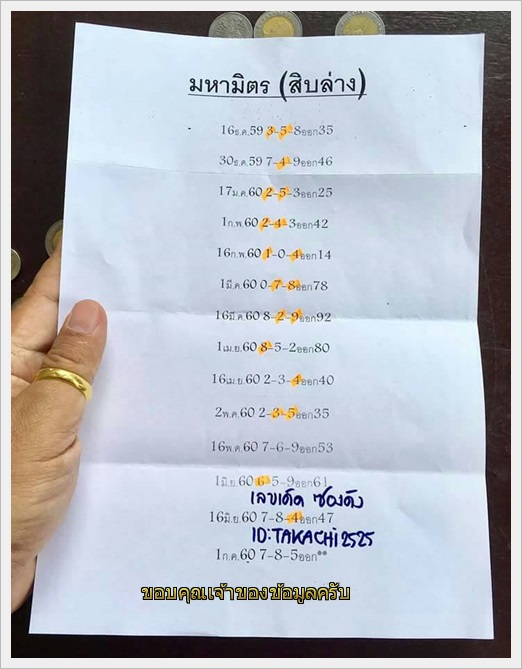 มหามิตร (สิบล่าง)
16ธ.ค.59 3-5-8ออก35
30ธ.ค.59 7-4-9ออก46
17ม.ค.60 2-5-3ออก25
1ก.พ.60 2-4-3ออก42
16ก.พ.60 1-0-4ออก14
1มี.ค.60 0-7-8ออก78
16มี.ค.60 8-2-9ออก92
1เม.ย.60 8-5-2ออก80
16เม.ย.60 2-3-4ออก40
2พ.ค.60 2-3-5ออก35
16พ.ค.60 7-6-9ออก53
1มิ.ย.60 6-5-9ออก61
เลขเด็ด ซองดัง
16มิ.ย.60 7-8-4ออก47
ID:TAKACHi2525
1ก.ค.60 7-8-5ออก**
ขอบคุณเจ้าของข้อมูลครับ